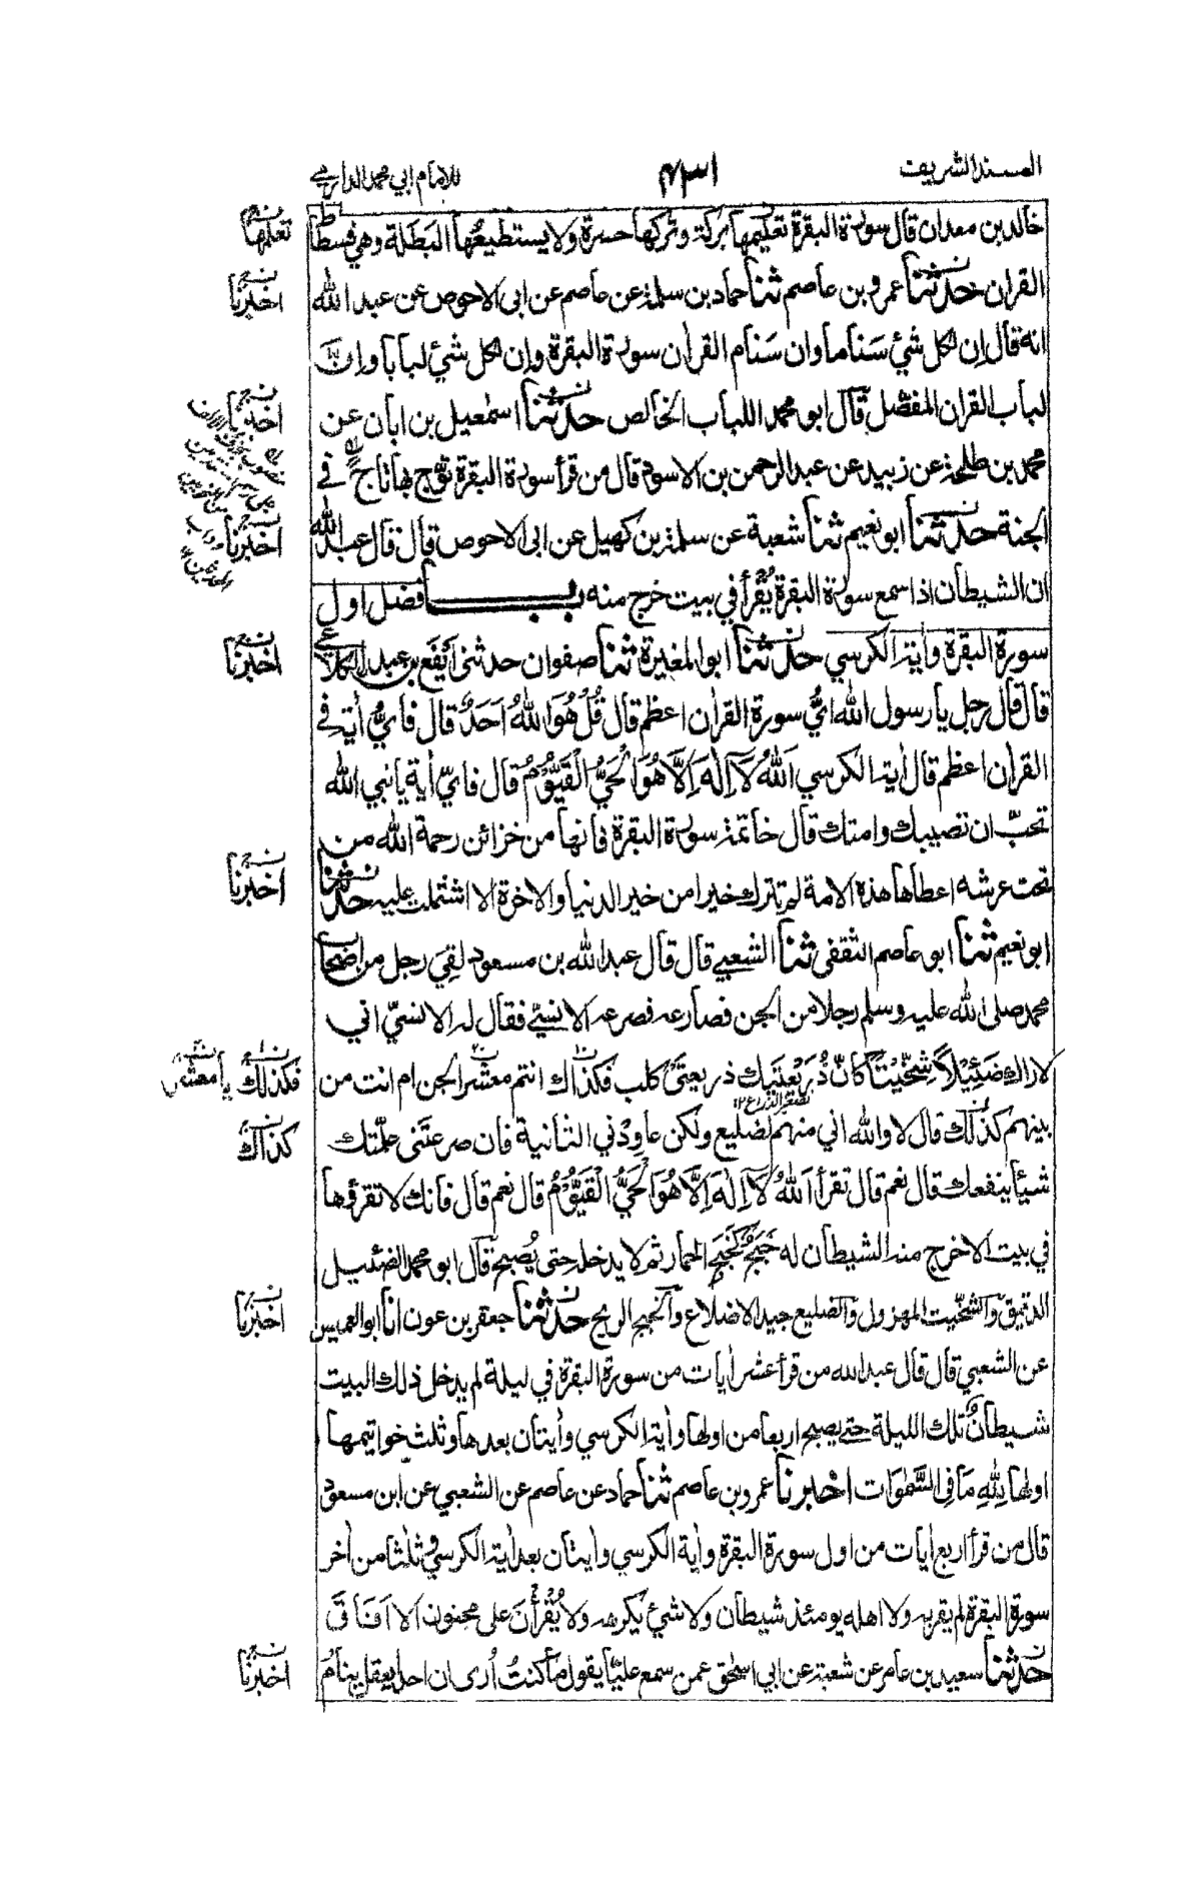 المسند الشريف
٤٣١
للامام ابي محمد الدارمي
خالد بن معدان قال سورة البقرة تعليمها بركة وتركها حسرة ولا يستطيعها البطلة وهي فسطاط
تعلمها
القران حدثنا عمرو بن عاصم ثنا حماد بن سلمة عن عاصم عن ابى الاحوص عن عبد الله
اخبرنا
انه قال ان لكل شئ سَناما وان سَنام القرأن سورة البقرة وان لكل شئ لبابا وان
لباب القران المفصّل قال ابو محمد اللباب الخالص حدثنا اسمعيل بن ابان عن
اخبرنا
محمد بن طلحة عن زبيد عن عبد الرحمن بن الاسود قال من قرأ سورة البقرة تُوّج بها تاج في
الجنة حدثنا ابو نعيم ثنا شعبة عن سلمة بن كهيل عن ابى الاحوص قال قال عبد الله
اخبرنا
ان الشيطان اذا سمع سورة البقرة يُقرأ في بيت خرج منه باب فضل اول
سورة البقرة وأية الكرسي حدثنا ابو المغيرة ثنا صفوان حدثنى أيفع بن عبد الكلاعي
اخبرنا
قال قال رجل يا رسول الله ايُّ سورة القرأن اعظم قال قُلْ هُوَ اللهُ اَحَدٌ قال فأيُّ أية في
القرأن اعظم قال أية الكرسي اَللهُ لَآ اِلٰهَ اِلَّا هُوَ الْحَيُّ الْقَيُّوْمُ قال فايّ أية يا نبي الله
تحبّ ان تصيبك وامتك قال خاتمة سورة البقرة فانها من خزائن رحمة الله من
تحت عرشه اعطاها هذه الامة لم تترك خيرا من خير الدنيا والاخرة الا اشتملت عليه حدثنا
اخبرنا
ابو نعيم ثنا ابو عاصم الثقفى ثنا الشعبي قال قال عبد الله بن مسعود لقي رجل من اصحاب
محمد صلى الله عليه وسلم رجلا من الجن فصارعه فصرعه الانسي فقال له الانسيّ اني
لاراك ضَئِيْلًا شِخّيْتًا كانّ ذُرَيْعتَيك ذريعتَىْ كلب فكذاك انتم معشر الجن ام انت من
فكذلك يا معشر
بينهم كذلك قال لا والله اني منهم لضليع ولكن عاوِدْني الثانية فان صرعتَنى علّمتك
كذاك
شيأ ينفعك قال نعم قال تقرأ اَللهُ لَآ اِلٰهَ اِلَّا هُوَ الْحَيُّ الْقَيُّوْمُ قال نعم قال فانك لا تقرؤها
في بيت الا خرج منه الشيطان له خَبَجٌ كَخَبَجِ الحمار ثم لا يدخله حتى يُصبح قال ابو محمد الضئيل
الدقيق والشخّيت المهزول والضليع جيد الاضلاع والخبج الريح حدثنا جعفر بن عون انا ابو العميس
اخبرنا
عن الشعبي قال قال عبد الله من قرأ عشر أيات من سورة البقرة في ليلة لم يدخل ذلك البيت
شيطانٌ تلك الليلة حتى يصبح اربعا من اولها وأية الكرسي وأيتان بعدها وثلث خواتيمها
اولها لِلّٰهِ مَا فِى السَّمٰوَات اخبرنا عمرو بن عاصم ثنا حماد عن عاصم عن الشعبي عن ابن مسعود
قال من قرأ اربع أيات من اول سورة البقرة وأية الكرسي وأيتان بعد أية الكرسي وثلثا من أخر
سورة البقرة لم يقربه ولا اهله يومئذ شيطان ولا شئ يكرهه ولا يُقْرأنَ على مجنون الا افاق
حدثنا سعيد بن عامر عن شعبة عن ابي اسحق عمن سمع عليّا يقول ما كنتُ اُرى ان احدا يعقل ينامُ
اخبرنا